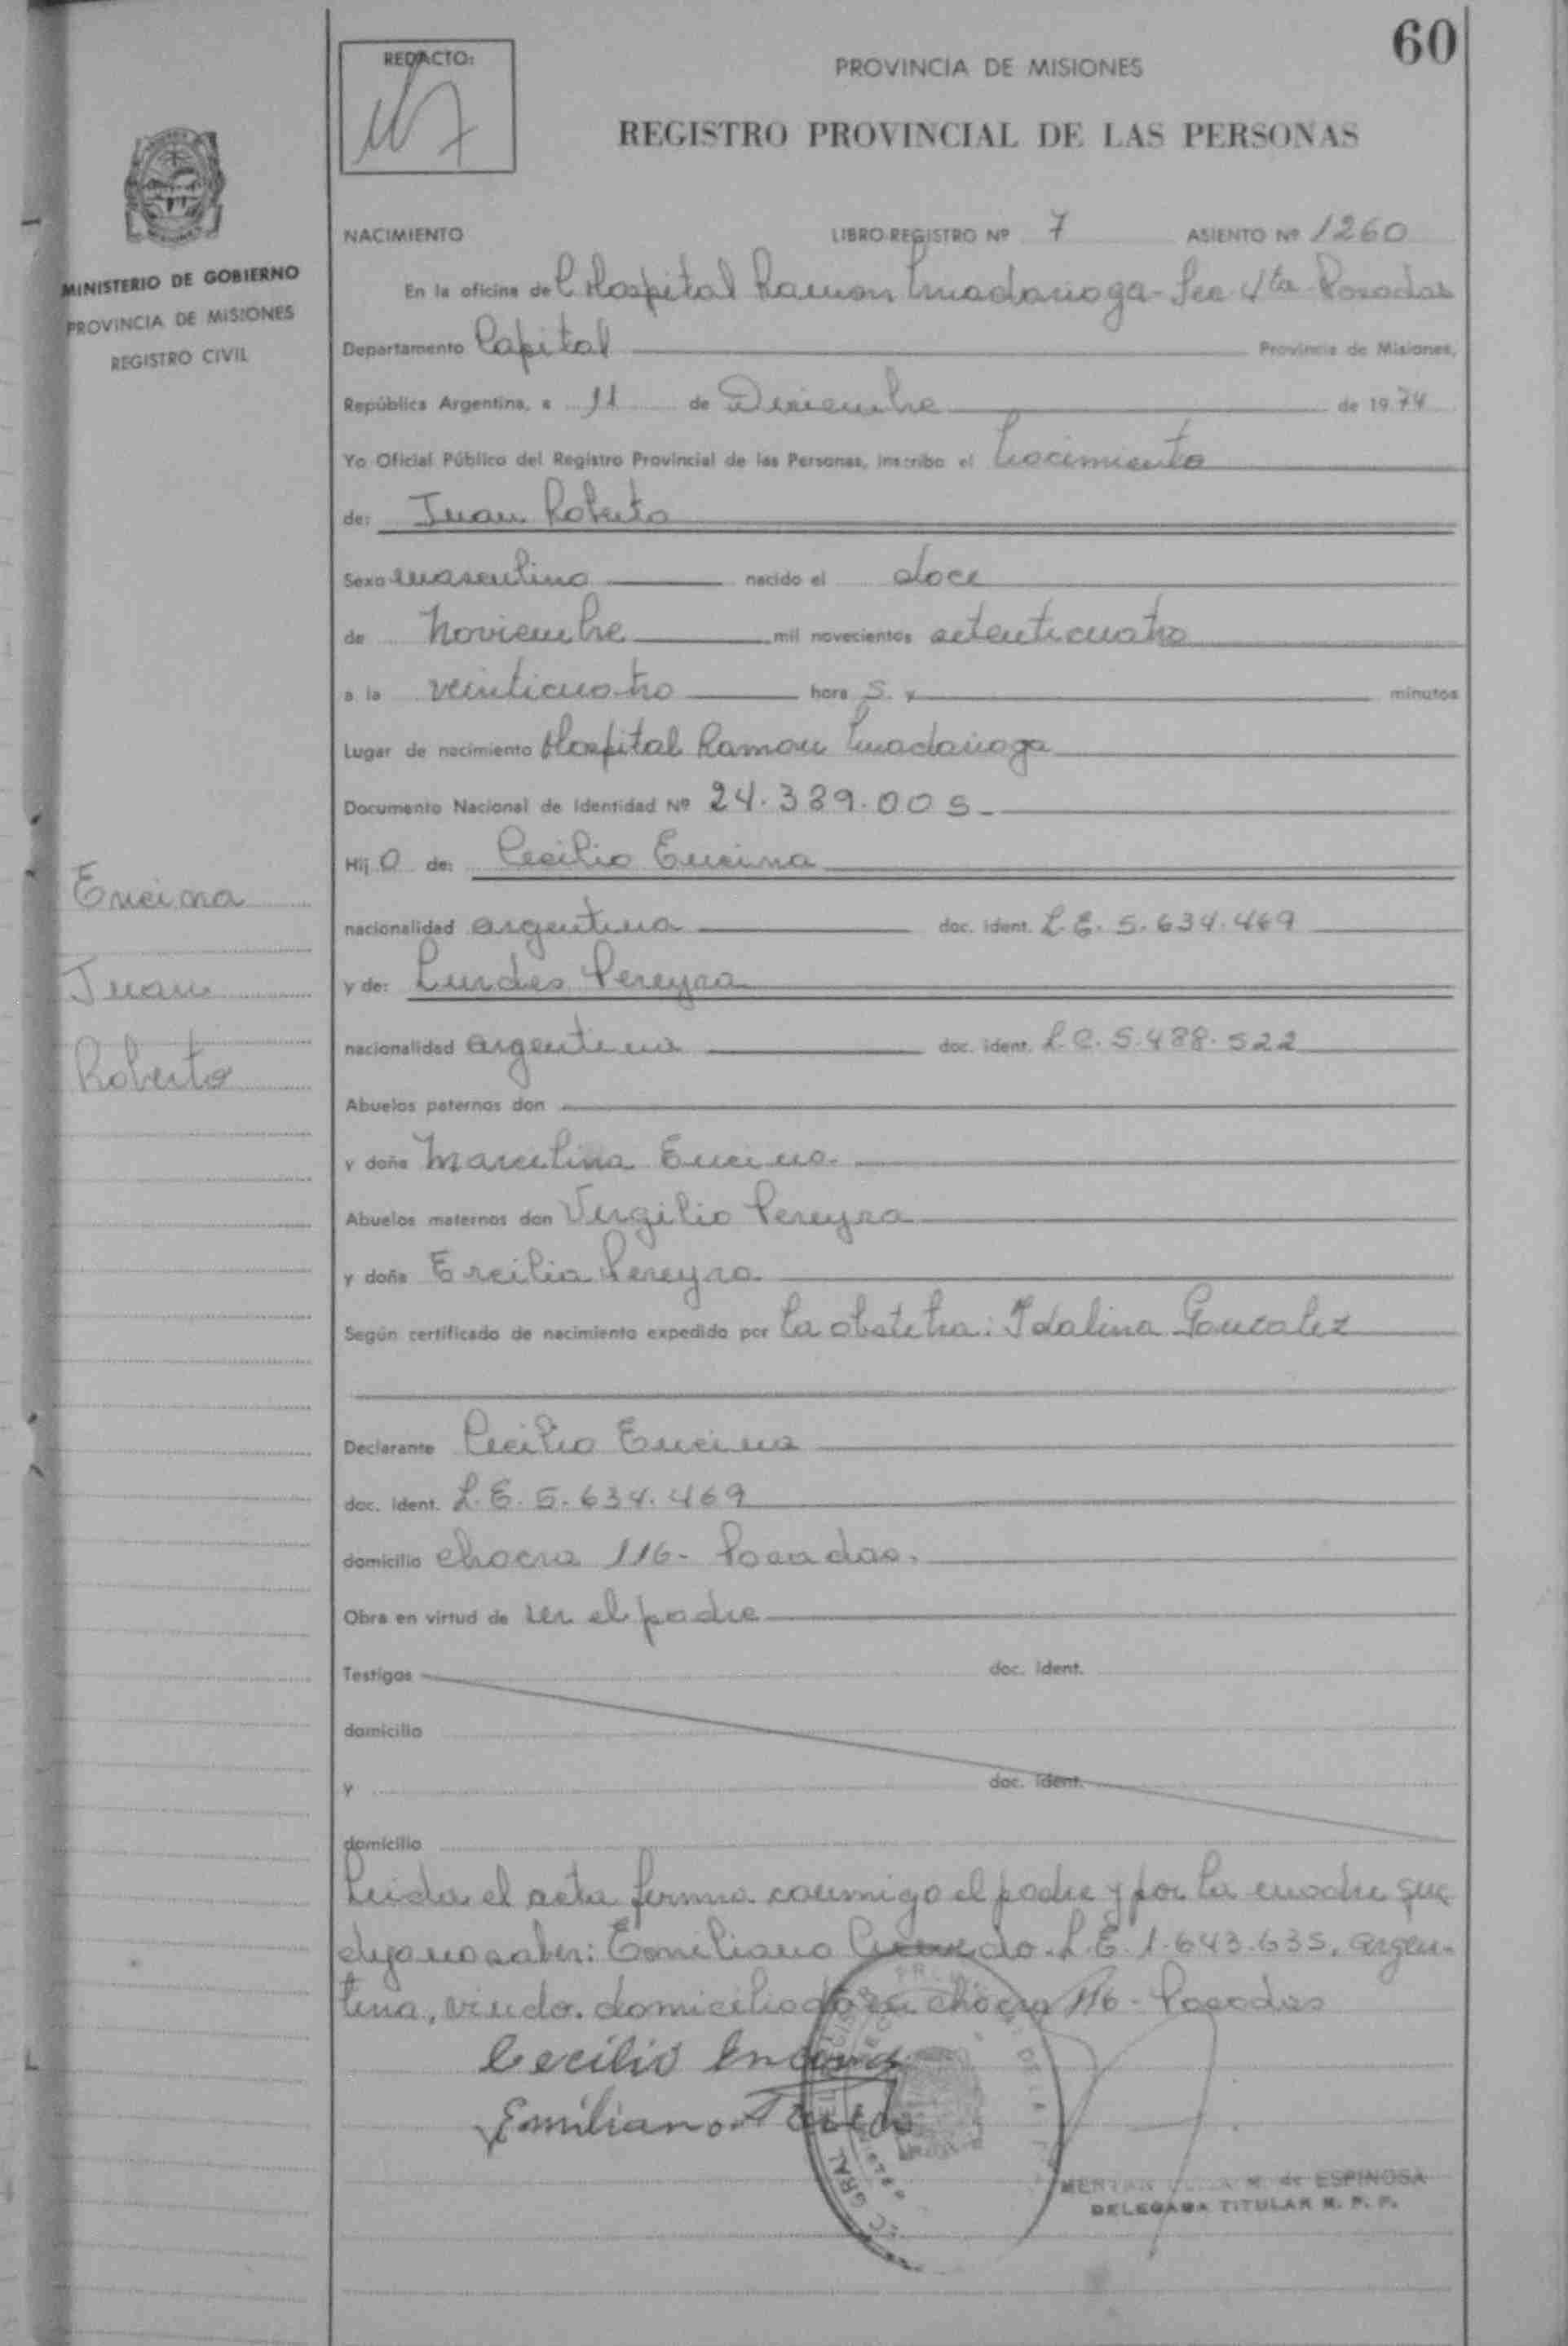 60
REDACTO:
PROVINCIA DE MISIONES
REGISTRO PROVINCIAL DE LAS PERSONAS
MINISTERIO DE GOBIERNO
PROVINCIA DE MISIONES
REGISTRO CIVIL
NACIMIENTO LIBRO REGISTRO Nº 7 ASIENTO Nº 1260
En la oficina del Hospital Ramon Madariaga - Sec 4ta Posadas
Departamento Capital Provincia de Misiones,
República Argentina, a 11 de Diciembre de 1974
Yo Oficial Público del Registro Provincial de las Personas, inscribo el Nacimiento
de: Juan Roberto
Sexo masculino nacido el doce
de Noviembre mil novecientos setenticuatro
a la veinticuatro hora s. y minutos
Lugar de nacimiento Hospital Ramon Madariaga
Documento Nacional de Identidad Nº 24.389.005-
Hij o de: Cecilio Encina
nacionalidad argentina doc. ident. L.E. 5.634.469
y de: Lurdes Pereyra
nacionalidad argentina doc. ident. L.C. 5.488.522
Encina
Juan
Roberto
Abuelos paternos don
y doña Marcelina Encina.
Abuelos maternos don Virgilio Pereyra
y doña Ercilia Pereyra.
Según certificado de nacimiento expedido por la obstetra: Idalina Gonzalez
Declarante Cecilio Encina
doc. ident. L.E. 5.634.469
domicilio chacra 116- Posadas.
Obra en virtud de ser el padre
Testigos doc. ident.
domicilio
y doc. ident.
domicilio
Leida el acta firma conmigo el padre y por la madre que
dijo no saber: Emiliano L.E. 1.643.635, argen-
tino, viudo. domiciliado en chacra 116- Posadas
Cecilio Encina
Emiliano
M. de ESPINOSA
DELEGADA TITULAR R. P. P.